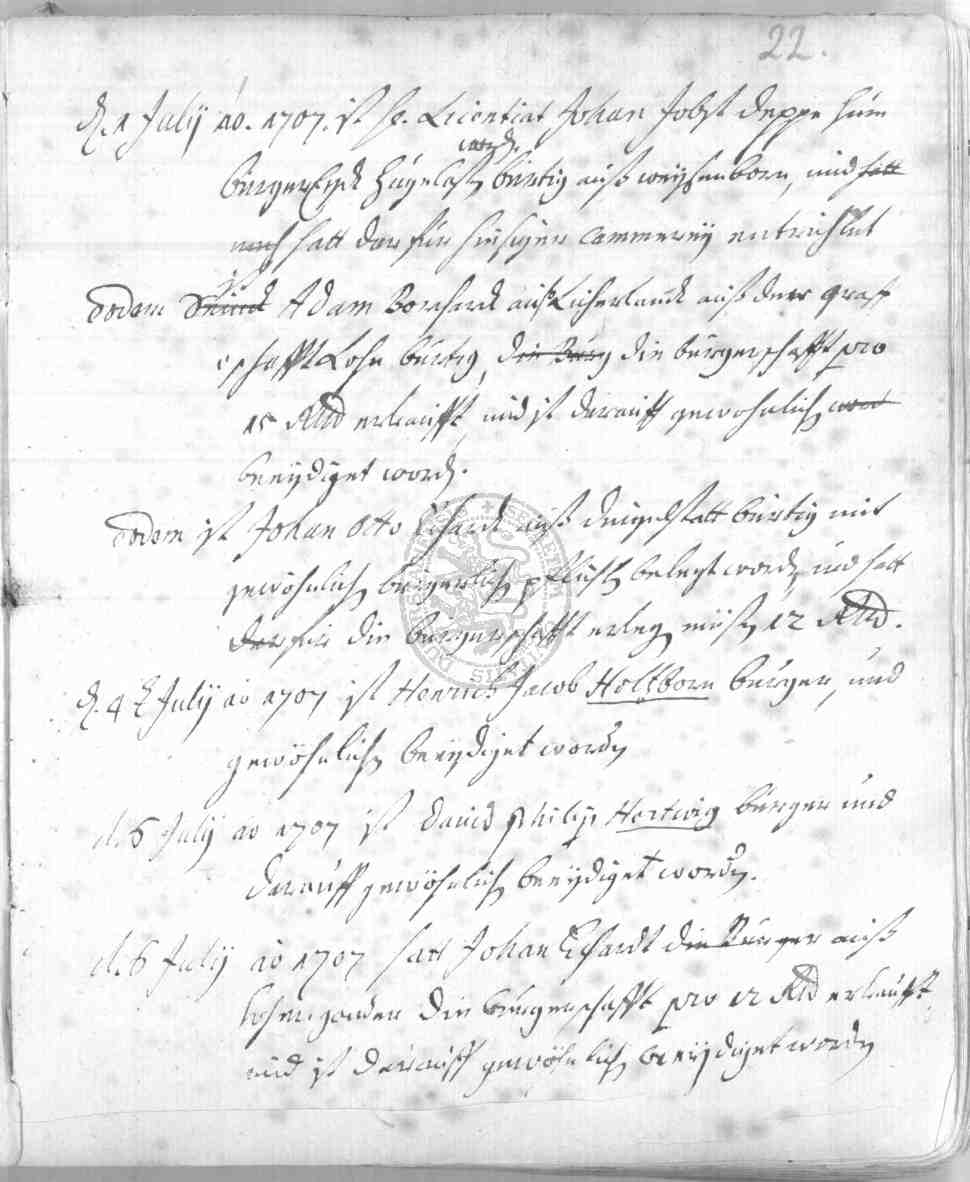 22.
d. 1 Julij ao. 1707. ist H. Licentiat Johan Jobst Deppe zum
word.
bürgerEydt zugelaßen bürtig auß weyßenborn, und hatt
noch hatt darfür hiesiger Cammereij entrichtet
ist
Eodem Adam Borchardt auß auß der graff
schafft Lohn bürtig, die Burg die bürgerschafft pro
15 Rthlr erkaufft und ist darauff gewohnlich word
beeydiget word.
Eodem ist Johan Otto Ehardt auß Dingelstatt bürtig mit
gewöhnlichen bürgerlichen pflichten belegt worden, und hatt
darfür die bürgerschafft erlegen müßen 12 Rthlr.
d. 4 t Julij ao 1707 ist Henrich Jacob Holtzborn bürger, und
gewöhnlichen beeydiget worden
d. 6 Julij ao 1707 ist David Philip Hertwig bürger und
darauff gewöhnlichen beeydiget worden.
d. 6 Julij ao 1707 hatt Johan Ehardt die Bürger auß
die bürgerschafft pro 12 Rthlr erkaufft
und ist darauff gewöhnlichen beeydiget worden